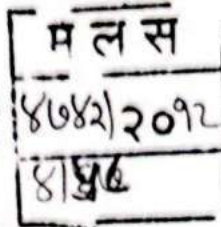 म ल स
४७४२/२०१२
४/